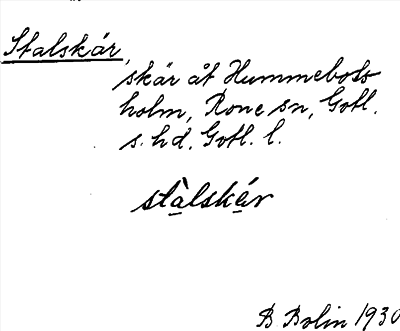 Stalskär,
skär åt Hummelbos-
holm, Rone sn, Gotl.
s. hd. Gotl. l.
stàlskér
B Bolin 1930